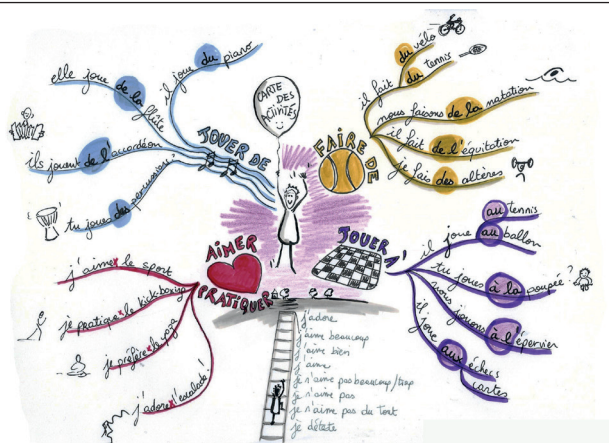 CARTE
DES
ACTIVITÉS
JOUER DE
il joue du piano
elle joue de la flûte
ils jouent de l'accordéon
tu joues des percussions
FAIRE DE
il fait
du vélo
du tennis
nous faisons de la natation
il fait de l'équitation
je fais des altères
JOUER À
il joue
au tennis
au ballon
tu joues à la poupée ?
nous jouons à l'épervier
il joue aux échecs
cartes
AIMER
PRATIQUER
j'aime x le sport
je pratique x le kick-boxing
je préfère x le yoga
j'adore x l'escalade !
j'adore
j'aime beaucoup
j'aime bien
j'aime
je n'aime pas beaucoup/trop
je n'aime pas
je n'aime pas du tout
je déteste